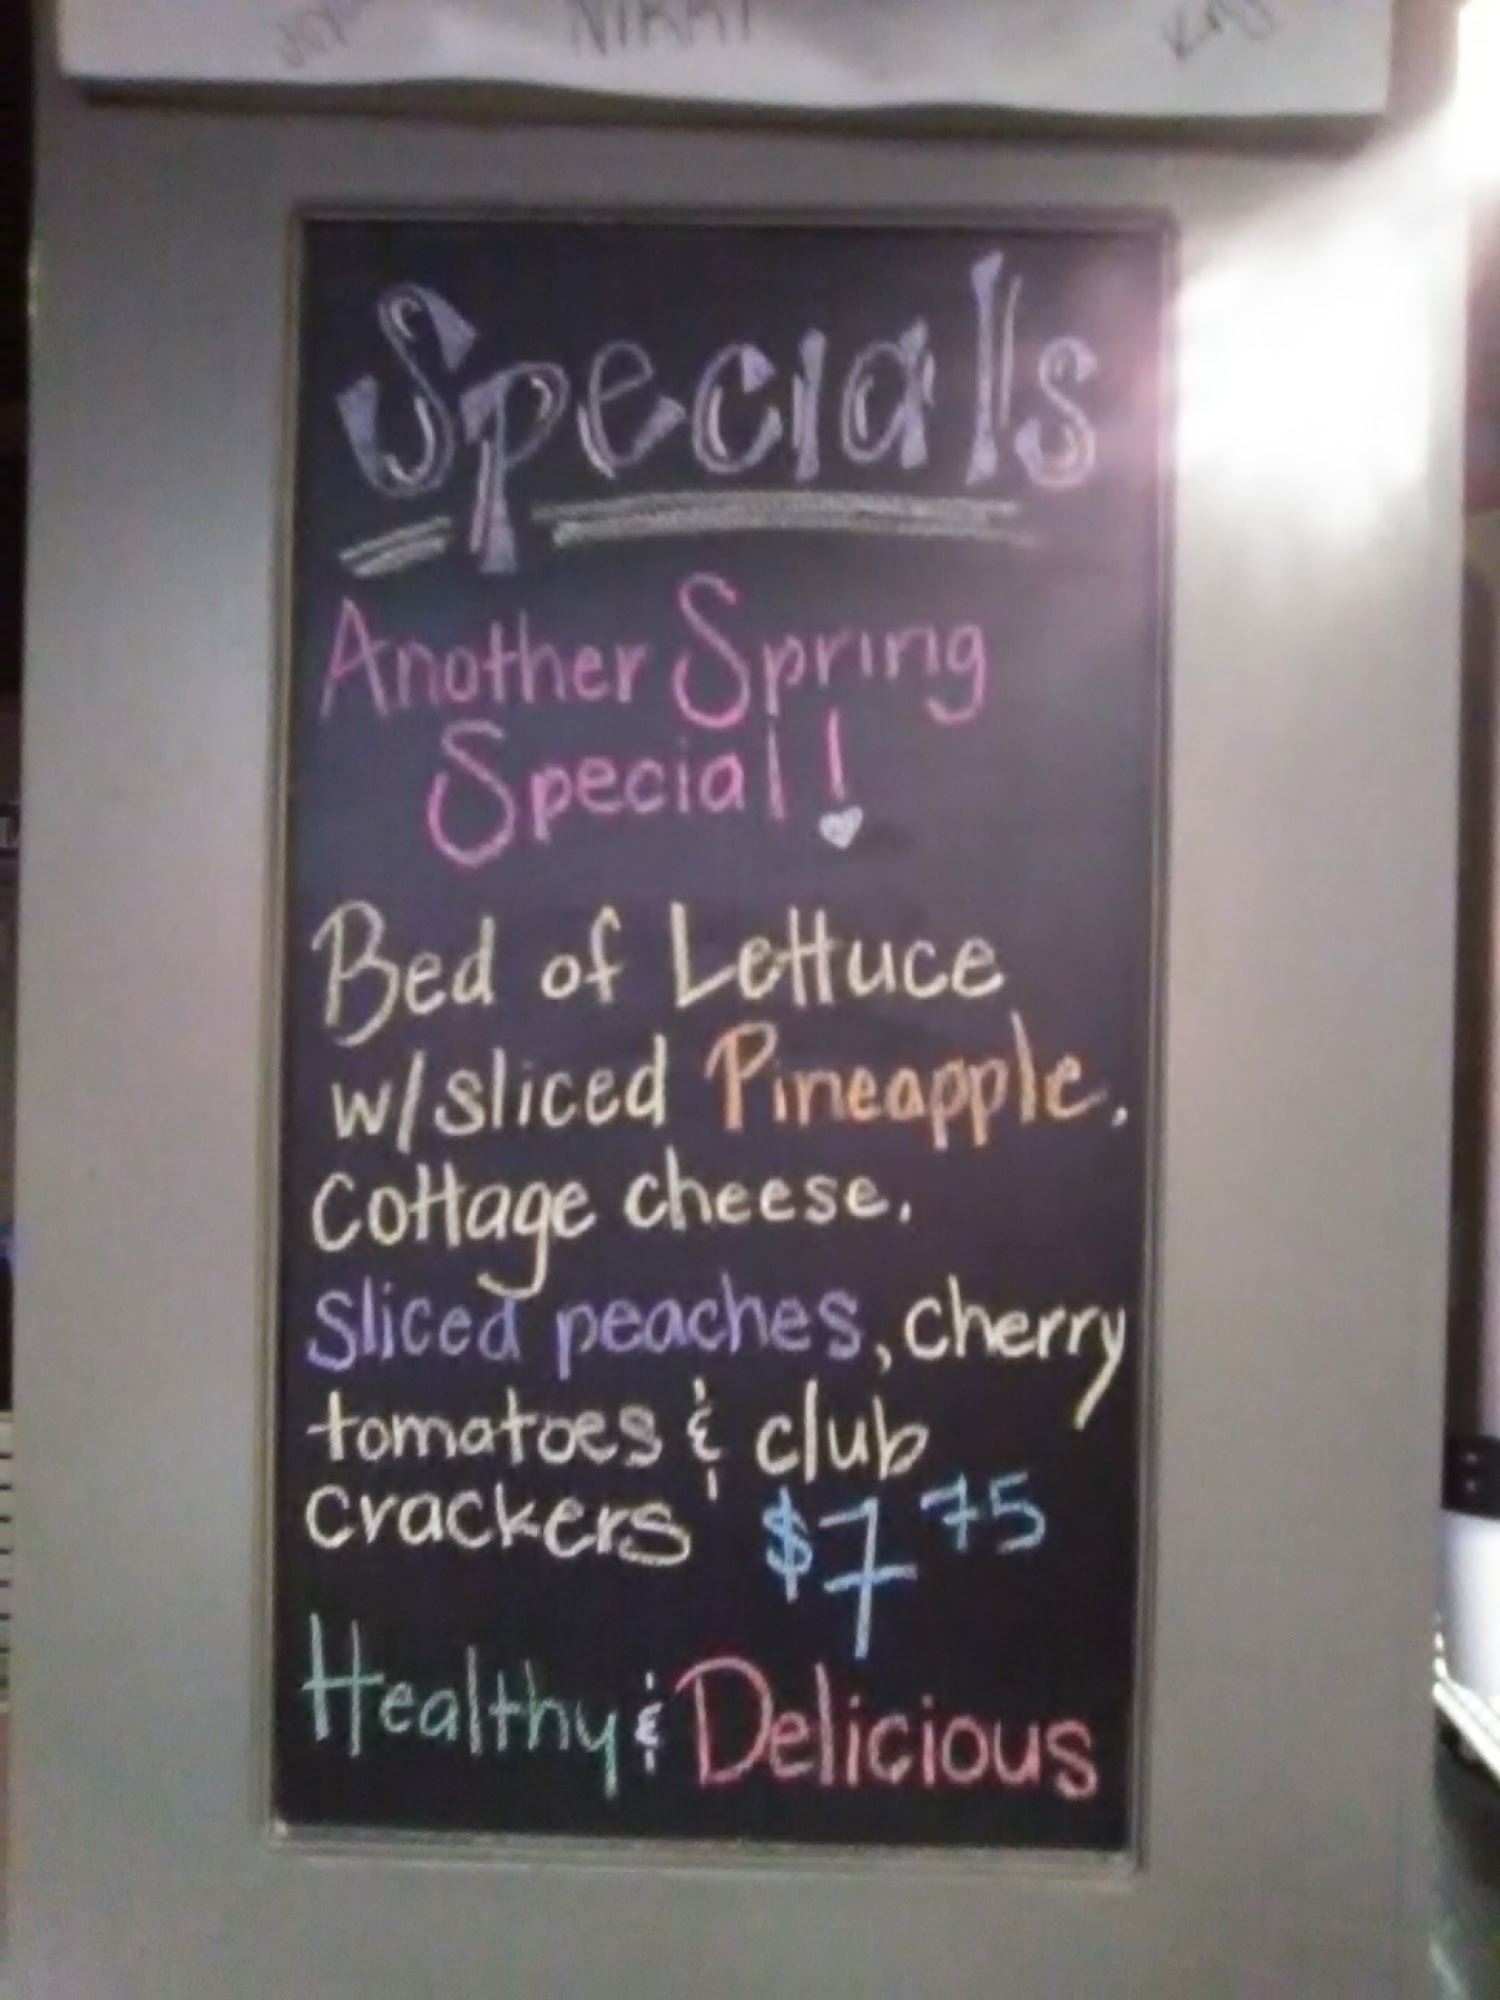 NIKKI
Specials
Another Spring
Special!
Bed of Lettuce
w/sliced Pineapple,
Cottage cheese,
sliced peaches, cherry
tomatoes & club
crackers $7 75
Healthy & Delicious